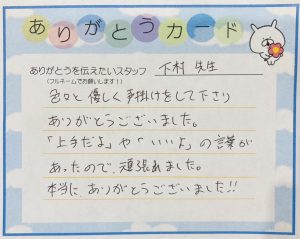 ありがとうカード
ありがとうを伝えたいスタッフ 下村 先生
(フルネームでお願いします!)
色々と優しく声掛けをして下さり
ありがとうございました。
「上手だよ」や「いいよ」の言葉が
あったので、頑張れました。
本当に、ありがとうございました!!